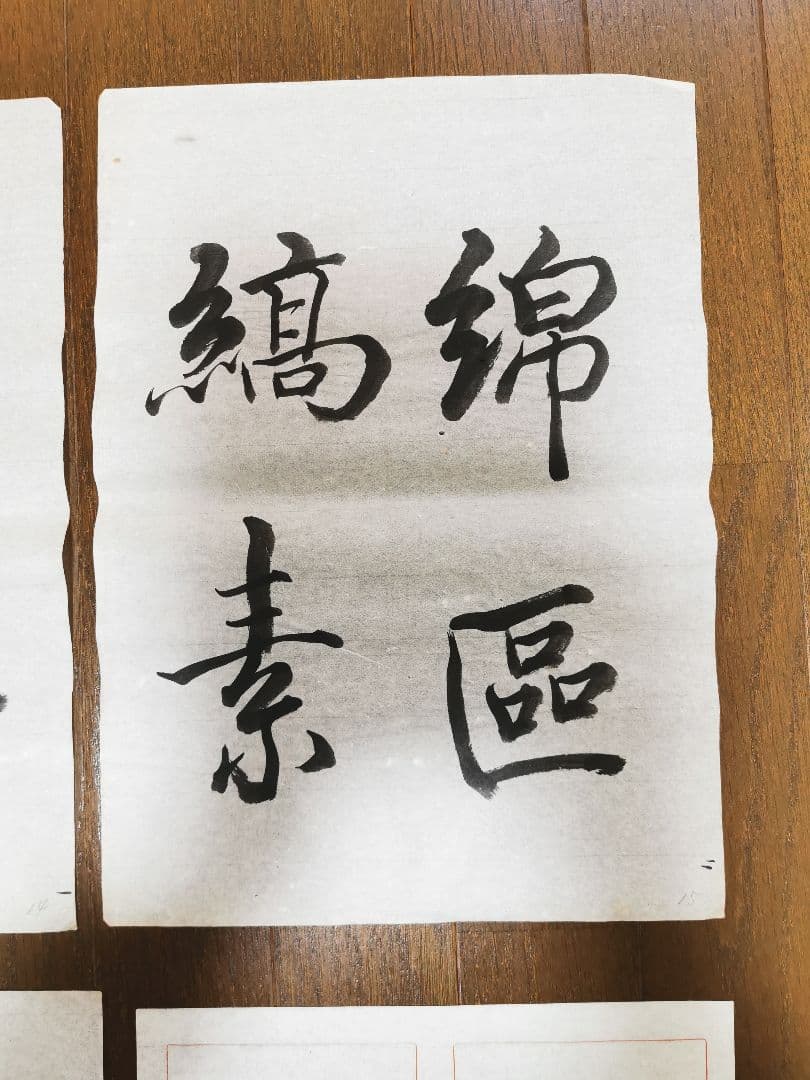 綿區
縞素
15
14